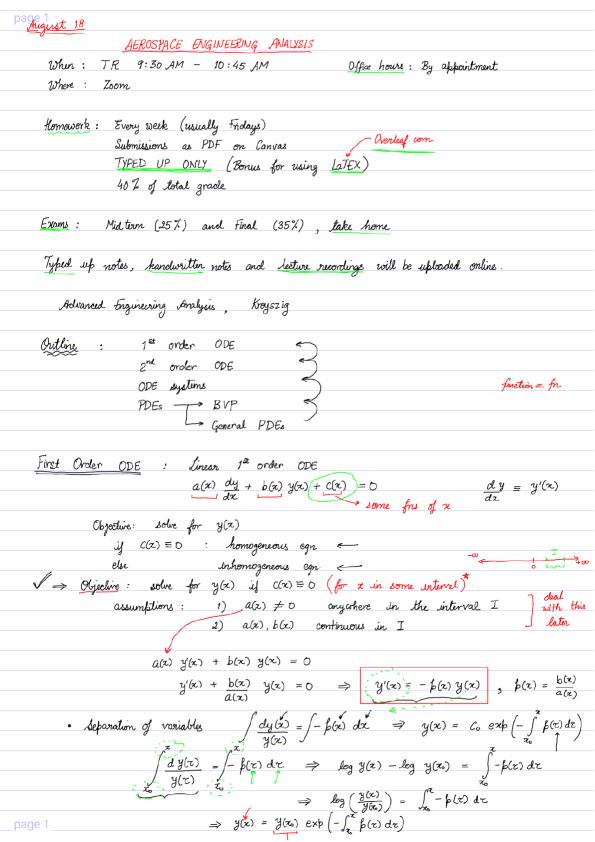 page 1
August 18
AEROSPACE ENGINEERING ANALYSIS
When : TR 9:30 AM - 10:45 AM Office hours : By appointment
Where : Zoom
Homework : Every week (usually Fridays)
Submissions as PDF on Canvas
Overleaf.com
TYPED UP ONLY (Bonus for using LaTEX)
40% of total grade
Exams : Midterm (25%) and Final (35%), take home
Typed up notes, handwritten notes and lecture recordings will be uploaded online.
Advanced Engineering Analysis, Kreyszig
Outline : 1st order ODE
2nd order ODE
ODE systems
function = fn
PDEs → BVP
→ General PDEs
First Order ODE : Linear 1st order ODE
a(x) dy/dx + b(x) y(x) + c(x) = 0 dy/dx ≡ y'(x)
→ some fns of x
Objective: solve for y(x)
if c(x) ≡ 0 : homogeneous eqn ←
else inhomogeneous eqn ←
-∞ 0 I +∞
✓ ⇒ Objective : solve for y(x) if c(x) ≡ 0 (for x in some interval)*
assumptions : 1) a(x) ≠ 0 anywhere in the interval I
2) a(x), b(x) continuous in I
deal
with this
later
a(x) y'(x) + b(x) y(x) = 0
y'(x) + b(x)/a(x) y(x) = 0 ⇒ y'(x) = -p(x) y(x) , p(x) = b(x)/a(x)
• Separation of variables ∫ dy(x)/y(x) = ∫ -p(x) dx ⇒ y(x) = C₀ exp(-∫_{x₀}^{x} p(τ) dτ)
∫_{x₀}^{x} dy(τ)/y(τ) = ∫_{x₀}^{x} -p(τ) dτ ⇒ log y(x) - log y(x₀) = ∫_{x₀}^{x} -p(τ) dτ
⇒ log(y(x)/y(x₀)) = ∫_{x₀}^{x} -p(τ) dτ
⇒ y(x) = y(x₀) exp(-∫_{x₀}^{x} p(τ) dτ)
page 1